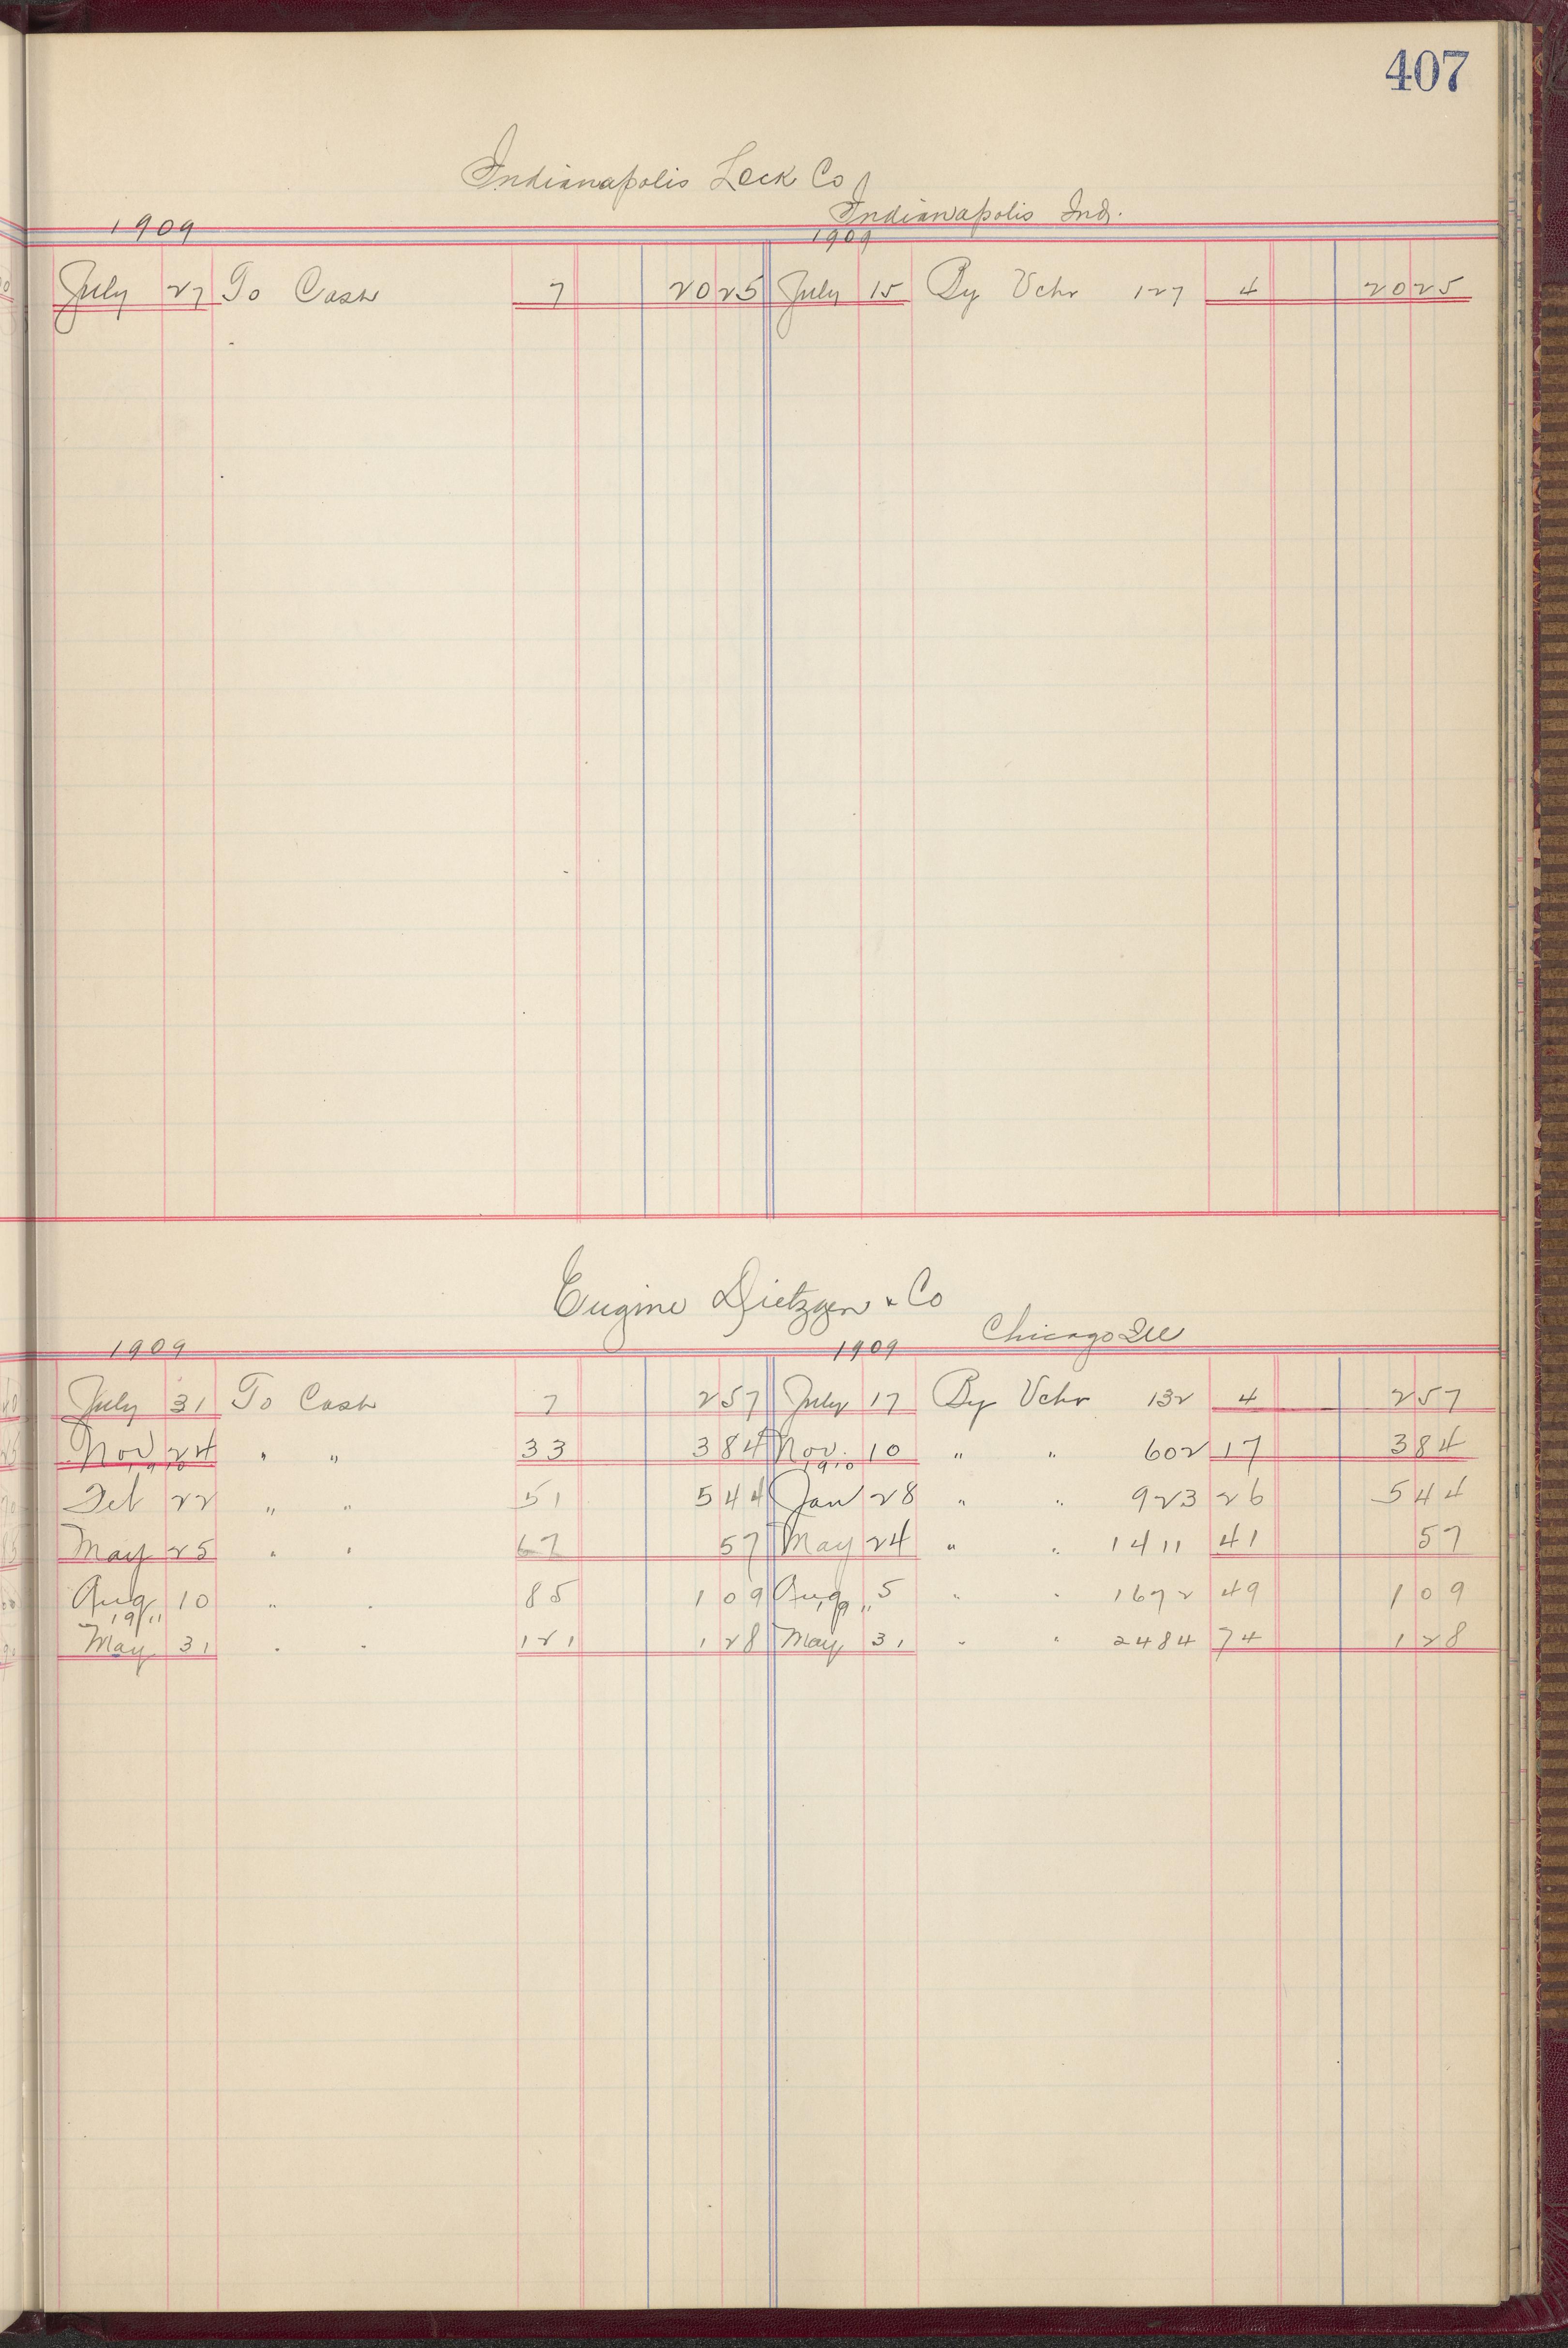 407
Indianapolis Lock Co
Indianapolis Ind.
1909 1909
July 27 To Cash 7 20 25 July 15 By Vchr 127 4 20 25
Eugine Dietzgen & Co
Chicago Ill
1909 1909
July 31 To Cash 7 2 57 July 17 By Vchr 132 4 2 57
Nov 24 " " 33 3 84 Nov. 10 " " 602 17 3 84
1910 1910
Feb 22 " " 51 5 44 Jan 28 " " 923 26 5 44
May 25 " " 67 57 May 24 " " 1411 41 57
Aug 10 " " 85 1 09 Aug 5 " " 1672 49 1 09
1911 1911
May 31 " " 121 1 28 May 31 " " 2484 74 1 28